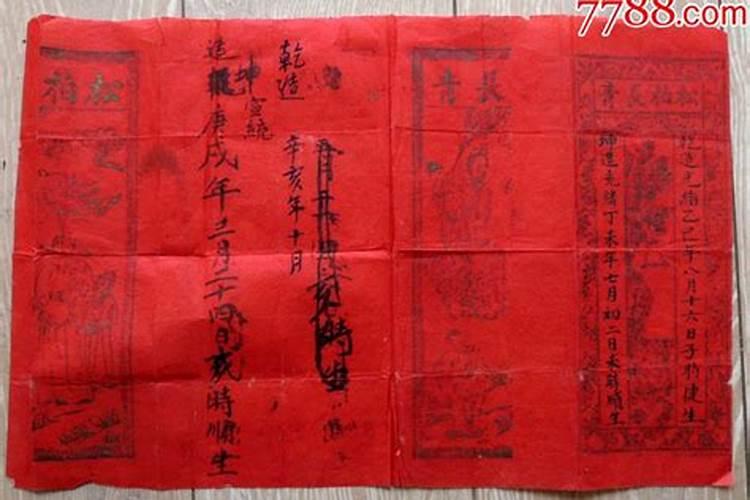 7788.com
松柏長青
乾造光緒乙巳年八月十六日子時健生
坤造光緒丁未年七月初二日未時順生
長青
乾造
辛亥年十月
時生
坤
宣統
造
庚戌年三月二十四日亥時順生
松柏